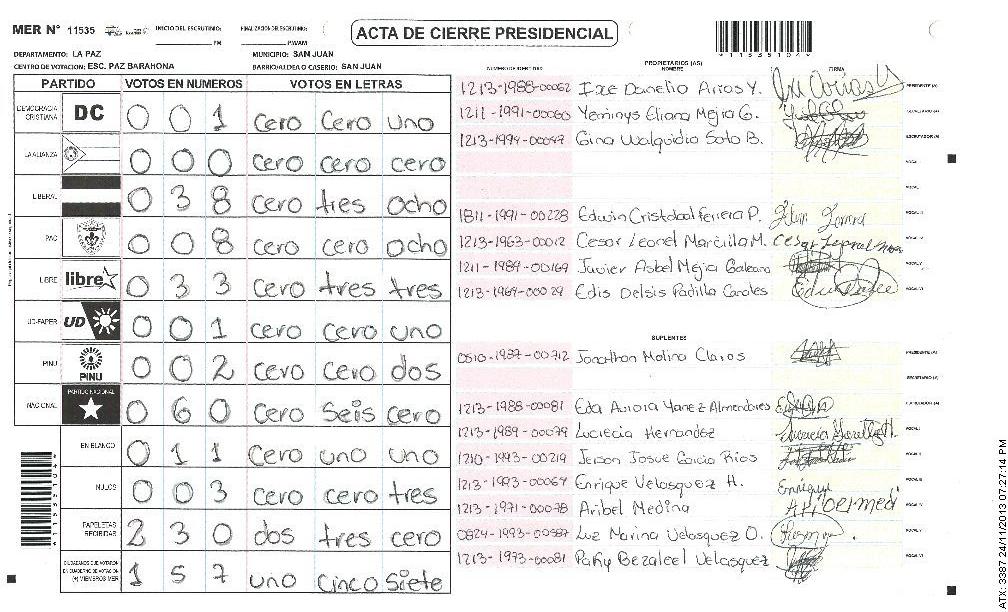 MER N° 11535 INICIO DEL ESCRUTINIO: FINALIZACION DEL ESCRUTINIO: ACTA DE CIERRE PRESIDENCIAL
PM P/WAM
DEPARTAMENTO: LA PAZ MUNICIPIO: SAN JUAN
CENTRO DE VOTACION: ESC. PAZ BARAHONA BARRIO/ALDEA O CASERIO: SAN JUAN
PARTIDO VOTOS EN NUMEROS VOTOS EN LETRAS
DEMOCRACIA CRISTIANA DC 0 0 1 cero cero uno
LA ALIANZA 0 0 0 cero cero cero
LIBERAL 0 3 8 cero tres ocho
PAC 0 0 8 cero cero ocho
LIBRE libre 0 3 3 cero tres tres
UD-FAPER UD 0 0 1 cero cero uno
PINU PINU 0 0 2 cero cero dos
NACIONAL PARTIDO NACIONAL 0 6 0 cero seis cero
EN BLANCO 0 1 1 cero uno uno
NULOS 0 0 3 cero cero tres
PAPELETAS RECIBIDAS 2 3 0 dos tres cero
CIUDADANOS QUE VOTARON EN CUADERNO DE VOTACION (+) MIEMBROS MER 1 5 7 uno cinco siete
NUMERO DE IDENTIDAD PROPIETARIOS (AS) NOMBRE FIRMA
1213-1988-00062 PRESIDENTE (A)
1211-1991-00060 Yeminys Eliana Mejia G. SECRETARIO (A)
1213-1994-00047 Gina Walquidia Soto B. ESCRUTADOR (A)
VOCAL I
VOCAL II
1811-1991-00228 Edwin Cristobal Ferrera P. VOCAL III
1213-1963-00012 Cesar Leonel Marcilla M. VOCAL IV
1211-1989-00169 Javier Asbel Mejia Galeano VOCAL V
1213-1969-00029 Edis Delsis Padilla Canales VOCAL VI
SUPLENTES
0510-1987-00712 Jonathan Molina Claros PRESIDENTE (A)
SECRETARIO (A)
1213-1988-00081 Eda Aurora Yanez Almendares ESCRUTADOR (A)
1213-1989-00079 Lucrecia Hernandez VOCAL I
1210-1993-00219 Jerson Josue Garcia Rios VOCAL II
1213-1993-00069 Enrique Velasquez H. Enrique VOCAL III
1213-1971-00078 Aribel Medina VOCAL IV
0824-1993-00587 Luz Marina Velasquez O. VOCAL V
1213-1993-00081 Patty Bezaleel Velasquez VOCAL VI
ATX: 3387 24/11/2013 07:27:14 PM